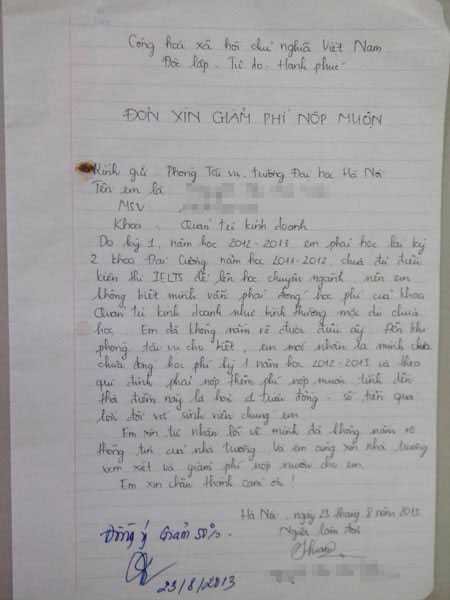 Cộng hoà xã hội chủ nghĩa Việt Nam
Độc lập - Tự do - Hạnh phúc
ĐƠN XIN GIẢM PHÍ NỘP MUỘN
Kính gửi: Phòng Tài vụ, trường Đại học Hà Nội
Tên em là
MSV
Khoa: Quản trị kinh doanh
Do kỳ 1, năm học 2012-2013 em phải học lại kỳ
2 khoa Đại Cương năm học 2011-2012, chưa đủ điều
kiện thi IELTS để lên học chuyên ngành nên em
không biết mình vẫn phải đóng học phí của khoa
Quản trị kinh doanh như bình thường mặc dù chưa
học. Em đã không nắm rõ được điều ấy. Đến khi
phòng tài vụ cho biết, em mới nhận ra mình chưa
chưa đóng học phí kỳ 1 năm học 2012-2013 và theo
qui định phải nộp thêm phí nộp muộn tính đến
thời điểm này là hơn triệu đồng - số tiền quá
lớn đối với sinh viên chúng em
Em xin tự nhận lỗi về mình đã không nắm rõ
thông tin của nhà trường. Và em cũng xin nhà trường
xem xét và giảm phí nộp muộn cho em.
Em xin chân thành cảm ơn!
Hà Nội, ngày 23 tháng 8 năm 2013
Người làm đơn
Đồng ý giảm 50%
23/8/2013